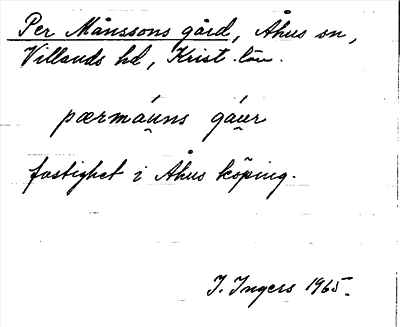 Per Månssons gård, Åhus sn,
Villands hd, Krist. län.
pærmáu̯ns gáu̯r
fastighet i Åhus köping.
I. Ingers 1965.